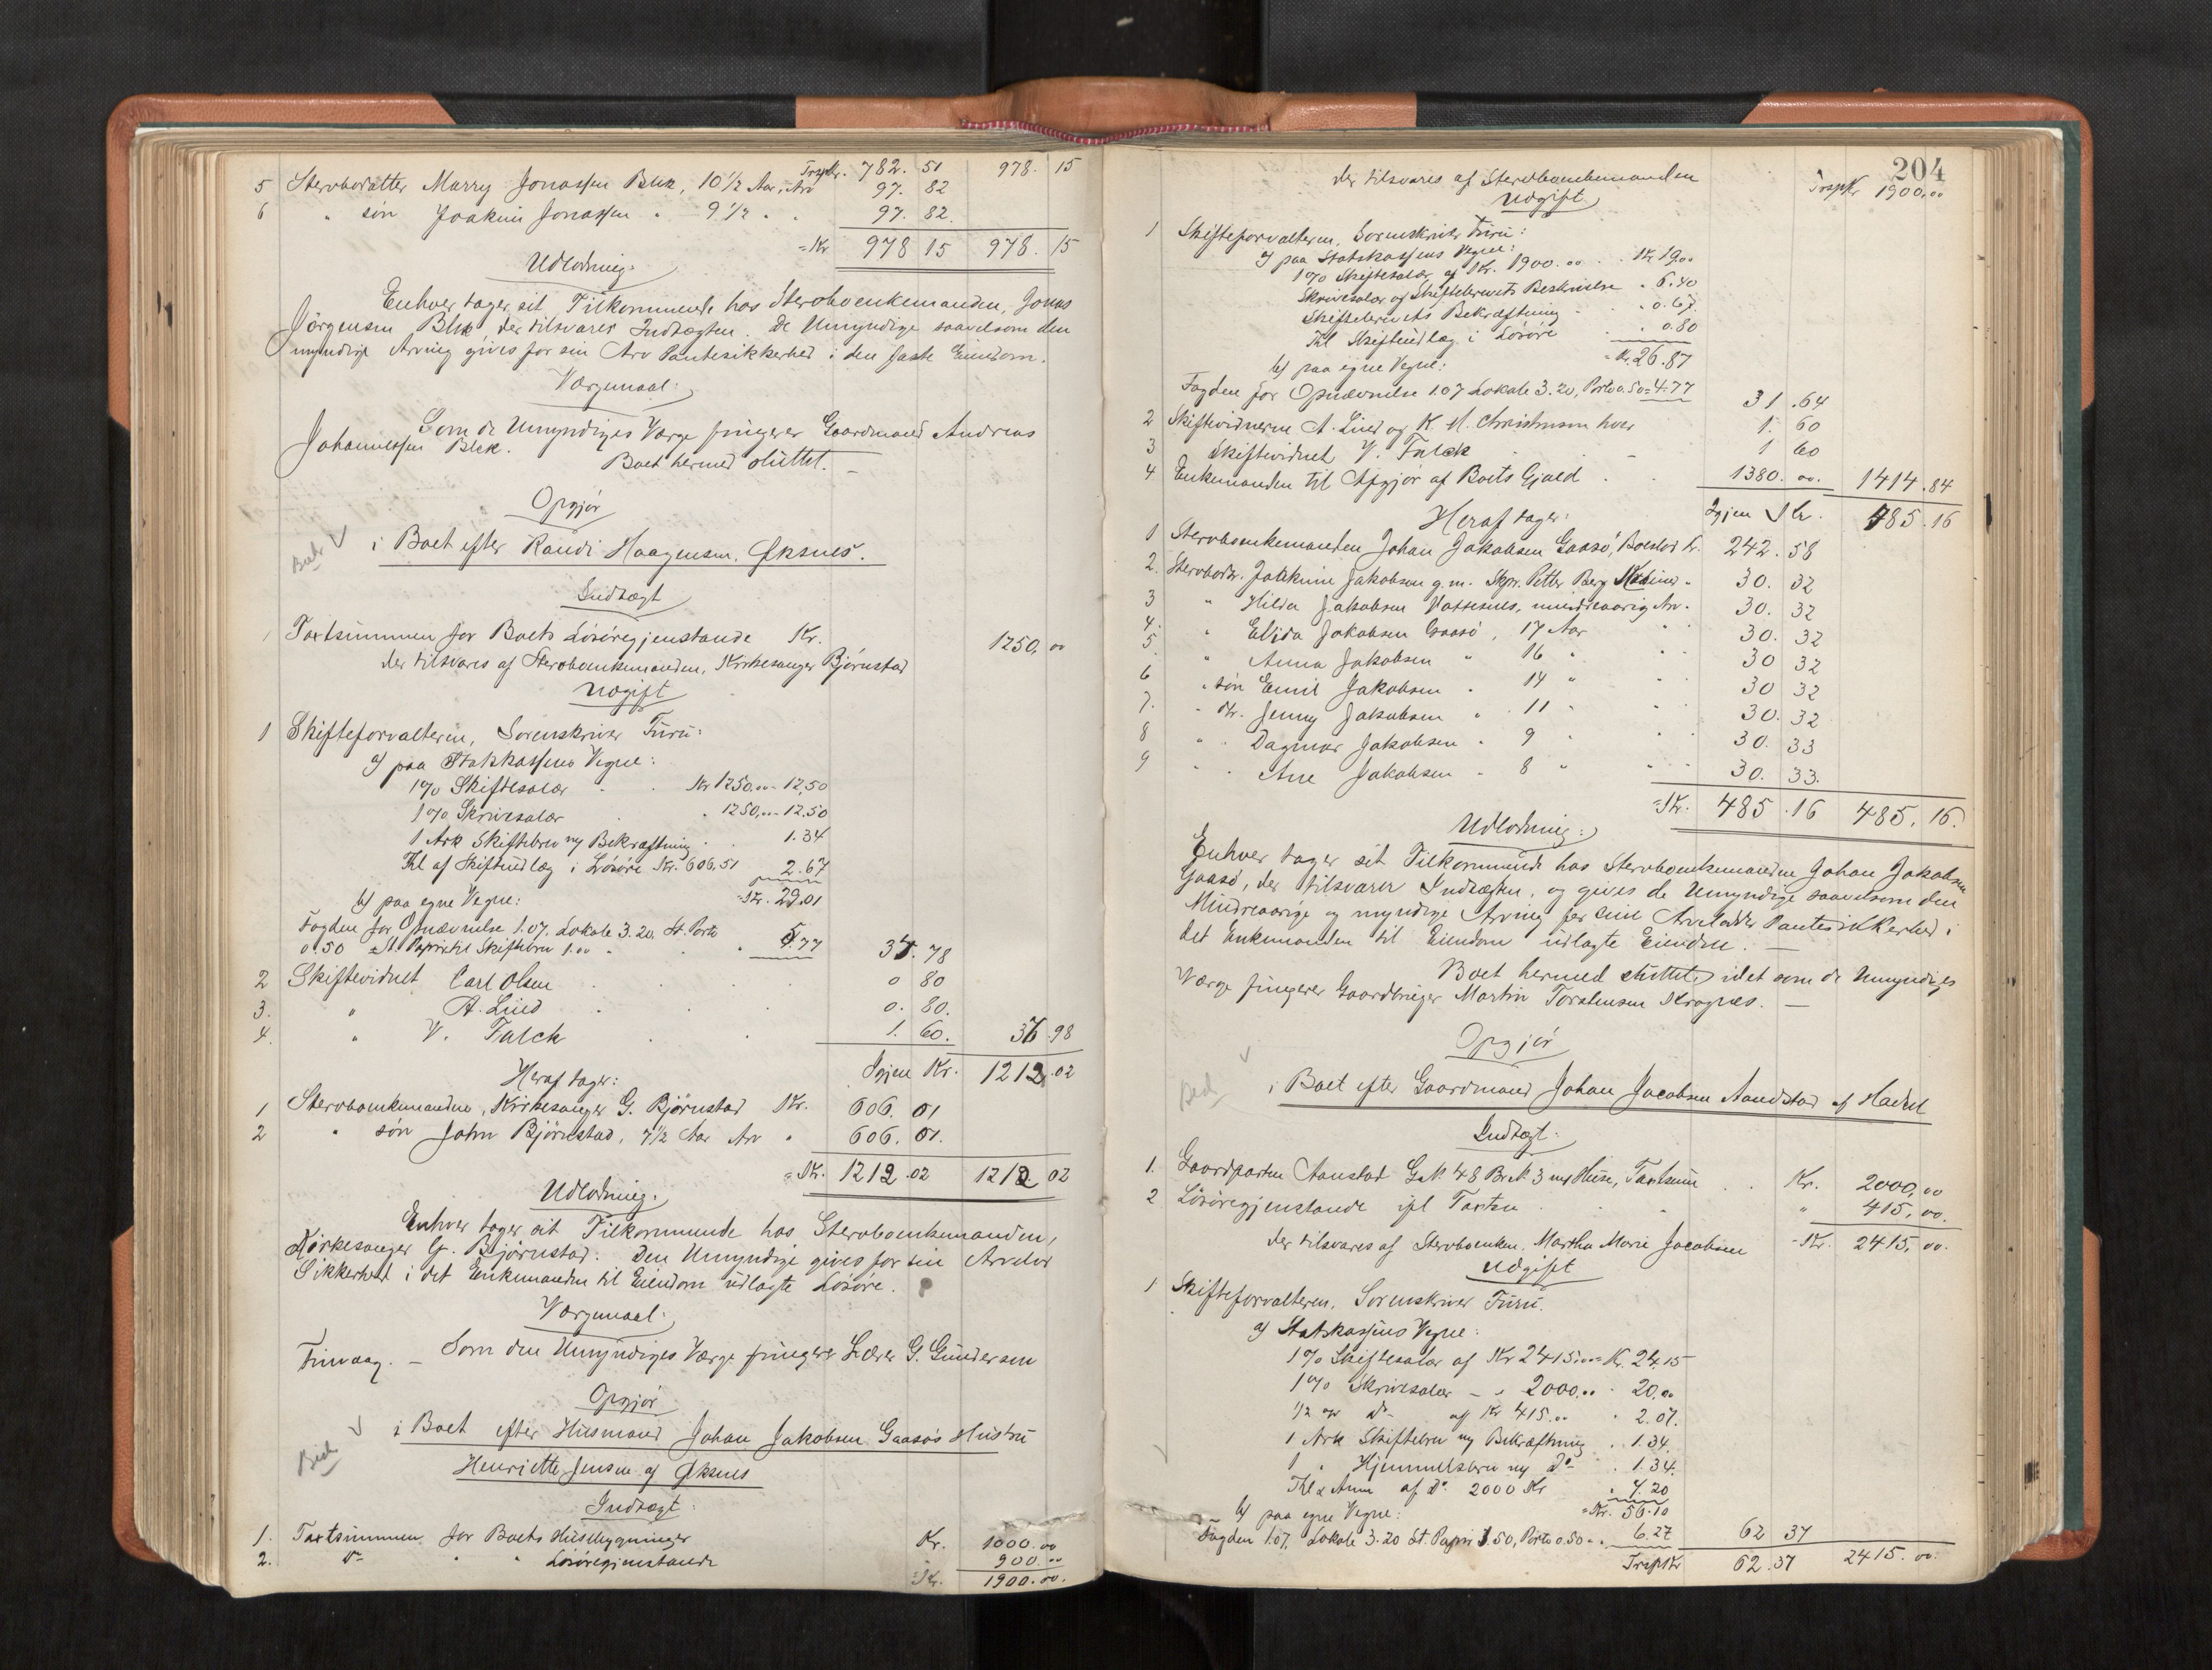 Trspkr. 782. 51 978. 15
5 Stervbodatter Marry Jonassen Blik, 10 1/2 Aar, Arv 97. 82
6 " søn Joakim Jonassen " 9 1/2 " " 97. 82.
= Kr 978 15 978. 15
Udlodning:
Enhver tager sit Tilkommende hos Stervboenkemanden, Jonas
Jørgensen Blik der tilsvarer Indtægten. De Umyndige saavelsom den
myndige Arving gives for sin Arv Pantesikkerhed i den faste Eiendom.
Værgemaal:
Som de Umyndiges Værge fungerer Gaardmand Andreas
Johannessen Blik.
Boet hermed sluttet. —
Opgjør
i Boet efter Randi Haagensen, Øksnes.
Indtægt
1 Taxtsummen for Boets Løsøregjenstande Kr. 1250,00
der tilsvares af Stervboenkemanden, Kirkesanger Bjørnstad
Udgift
1 Skifteforvalteren, Sorenskriver Furu:
a) paa Statskassens Vegne:
1 % Skiftesalær Kr 1250.00 - 12,50
1 % Skrivesalær " 1250,00 - 12.50
1 Ark Skiftebrev og Bekræftning 1.34
Thl af Skifteudlæg i Løsøre Kr. 606,51 2.67
= Kr. 29.01
b) paa egne Vegne:
Fogden for Opnævnelse 1.07. Lokale 3.20. St. Porto
0.50 St. Papir til Skiftebrev 1.00 " 5.77 34.78
2 Skiftevidnet Carl Olsen 0 80
3. " A. Lind 0. 80.
4. " V. Falck 1. 60. 37.98
Igjen Kr. 1212.02
Heraf tager:
1 Stervboenkemanden, Kirkesanger G. Bjørnstad Kr. 606. 01
2 " søn John Bjørnstad, 7 1/2 Aar Arv " 606. 01.
= Kr. 1212.02 1212. 02
Udlodning.
Enhver tager sit Tilkommende hos Stervboenkemanden,
Kirkesanger G. Bjørnstad. Den Umyndige gives for sin Arvelod
Sikkerhed i det Enkemanden til Eiendom udlagte Løsøre.
Værgemaal:
Som den Umyndiges Værge fungerer Lærer G. Gundersen
Tinvaag. —
Opgjør
i Boet efter Husmand Johan Jakobsen Gaasøs Hustru
Henriette Jensen af Øksnes
Indtægt:
1. Taxtsummen for Boets Husebygninger Kr. 1000.00
2. Do " " Løsøregjenstande 900.00
= Kr. 1900.00.
204
Trspkr 1900,00
der tilsvares af Stervboenkemanden
Udgift
1 Skifteforvalteren, Sorenskriver Furu:
a) paa Statskassens Vegne:
1 % Skiftesalær af Kr. 1900.00 Kr 19.00
Skrivesalær og Skiftebrevets Beskrivelse " 6.40
Skiftebrevets Bekræftning " 0.67
Thl Skifteudlæg i Løsøre " 0.80
= Kr. 26.87
b) paa egne Vegne:
Fogden for Opnævnelse 1.07 Lokale 3.20, Porto 0.50 = 4.77 31.64
2 Skiftevidnerne A. Lind og K. M. Christensen hver 1. 60
3 Skiftevidnet V. Falck 1 60
4 Enkemanden til Afgjør af Boets Gjæld 1380. 00. 1414.84
Igjen Kr. 485.16
Heraf tager:
1 Stervboenkemanden Johan Jakobsen Gaasø, Boeslod Kr. 242.58
2. Stervbodtr. Jakkine Jakobsen g.m. Skpr. Petter Berg " 30. 32
3 " Hilda Jakobsen Vottesnes, mindreaarig Arv. 30. 32
4. " Elida Jakobsen Gaasø, 17 Aar 30. 32
5 " Anna Jakobsen " 16 " 30 32
6 " søn Emil Jakobsen " 14 " 30 32
7. " dtr. Jenny Jakobsen " 11 " 30. 32
8 " " Dagmar Jakobsen " 9 " 30. 33
9 " " Ane Jakobsen " 8 " 30. 33.
= Kr. 485.16 485. 16.
Udlodning:
Enhver tager sit Tilkommende hos Stervboenkemanden Johan Jakobsen
Gaasø, der tilsvarer Indtægten, og gives de Umyndige saavelsom den
Mindreaarige og myndige Arving for sine Arvelodder Pantesikkerhed i
det Enkemanden til Eiendom udlagte Eiendom. —
Boet hermed sluttet, idet som de Umyndiges
Værge fungerer Gaardbruger Martin Torstensen Kragnes. —
Opgjør
i Boet efter Gaardmand Johan Jacobsen Aandstad af Hadsel
Indtægt:
1. Gaardparten Aanstad G.N. 48 Br.N. 3 m/ Huse, Taxtsum Kr. 2000,00
2 Løsøregjenstande ifl Taxten " 415,00.
der tilsvares af Stervboenken, Martha Marie Jacobsen = Kr. 2415,00.
Udgift
1 Skifteforvalteren, Sorenskriver Furu.
a) Statskassens Vegne:
1 % Skiftesalær af Kr 2415,00 = Kr. 24.15
1 % Skrivesalær — " 2000.00 " 20.00
1/2 % Do af Kr 415.00 " 2.07.
1 Ark Skiftebrev og Bekræftning " 1.34.
1 " Hjemmelsbrev og Do " 1.34.
Thl & Anm af Do 2000 Kr " 7.20
= Kr. 56.10
b) paa egne Vegne:
Fogden 1.07, Lokale 3.20 St. Papir 1.50, Porto 0.50 = " 6.27 62 37
Trspkr 62.37 2415.00.